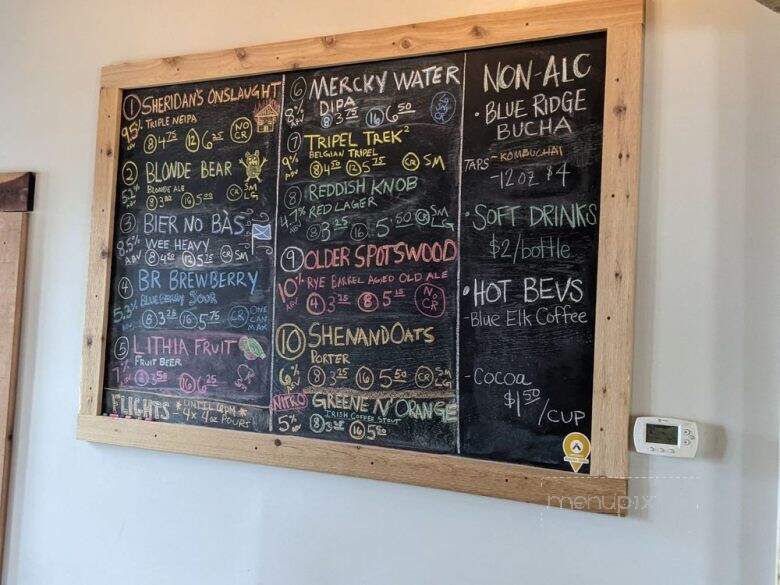 ① SHERIDAN'S ONSLAUGHT
TRIPLE NEIPA
9.5% ABV ⑧ 4.75 ⑫ 6.25 NO CR
② BLONDE BEAR
BLONDE ALE
5.2% ABV ⑧ 3.00 ⑯ 5.00 CR SM LG
③ BIER NO BÀS
WEE HEAVY
8.5% ABV ⑧ 4.00 ⑫ CR SM
④ BR BREWBERRY
BLUEBERRY SOUR
5.3% ABV ⑧ 3.25 ⑯ 5.75 CR ONE CAN MAX
⑤ LITHIA FRUIT
FRUIT BEER
7% ABV ⑧ 3.50 ⑯ 6.25
FLIGHTS *UNTIL 4PM*
4x 4oz POURS
⑥ MERCKY WATER
DIPA
8% ABV ⑧ 3.75 ⑯ 6.50
⑦ TRIPEL TREK²
BELGIAN TRIPEL
9% ABV ⑧ 4.50 ⑫ 5.75 CR SM
⑧ REDDISH KNOB
RED LAGER
4.7% ABV ⑧ 3.25 ⑯ 5.50 CR SM LG
⑨ OLDER SPOTSWOOD
RYE BARREL AGED OLD ALE
10% ABV ④ 3.25 ⑧ 5.75 NO CR
⑩ SHENANDOATS
PORTER
6% ABV ⑧ 3.25 ⑯ 5.50 CR SM LG
NITRO GREENE N' ORANGE
IRISH COFFEE STOUT
5% ⑧ 3.25 ⑯ 5.50
NON-ALC
• BLUE RIDGE
BUCHA
TAPS - KOMBUCHA!
- 12oz $4
• SOFT DRINKS
$2/bottle
• HOT BEVS
- Blue Elk Coffee
- Cocoa
$1.50/CUP
menupix